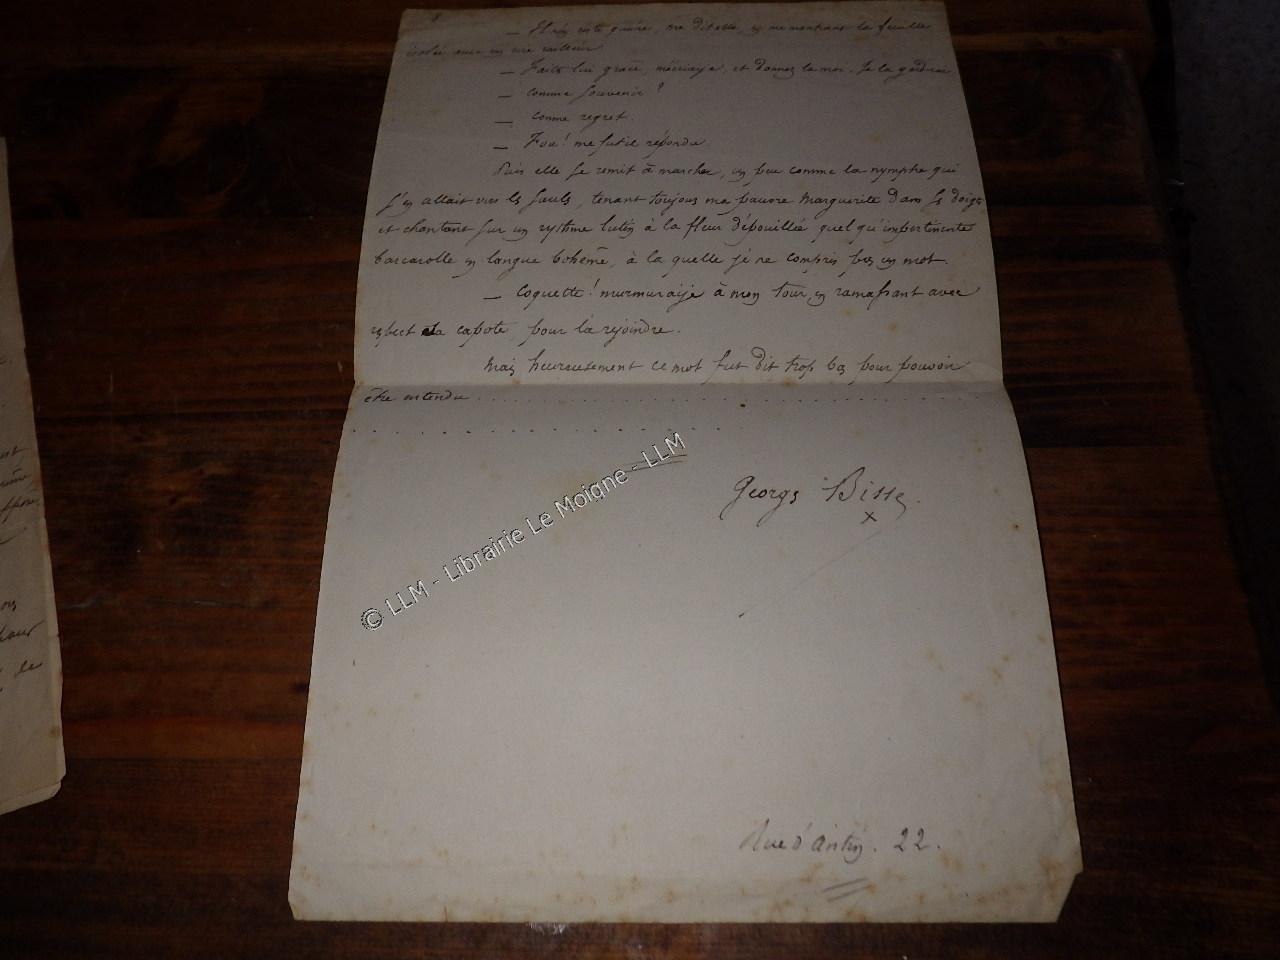 8
— Il n'en reste guère, me dit elle, en me montrant la feuille
isolée avec un rire railleur
— Faites lui grace, m'écriai-je, et donnez la moi. Je la garderai
— comme souvenir ?
— comme regret.
— Fou ! me fut il répondu
Puis elle se remit à marcher, un peu comme la nymphe qui
s'en allait vers les sauls, tenant toujours ma pauvre Marguerite dans ses doigts
et chantant sur un rythme lutin à la fleur dépouillée quelqu'impertinente
barcarolle en langue bohême, à la quelle je ne compris pas un mot.
— Coquette ! murmurai-je à mon tour, en ramassant avec
respect sa capote, pour la rejoindre.
Mais heureusement ce mot fut dit trop bas pour pouvoir
être entendu . . . . . . . . . . . . . . . . . . . . . . . . . . . . . . .
. . . . . . . . . . . . . . . . . . . .
Georges Bisse.
x
Rue d'Antin. 22.
© LLM - Librairie Le Moigne - LLM